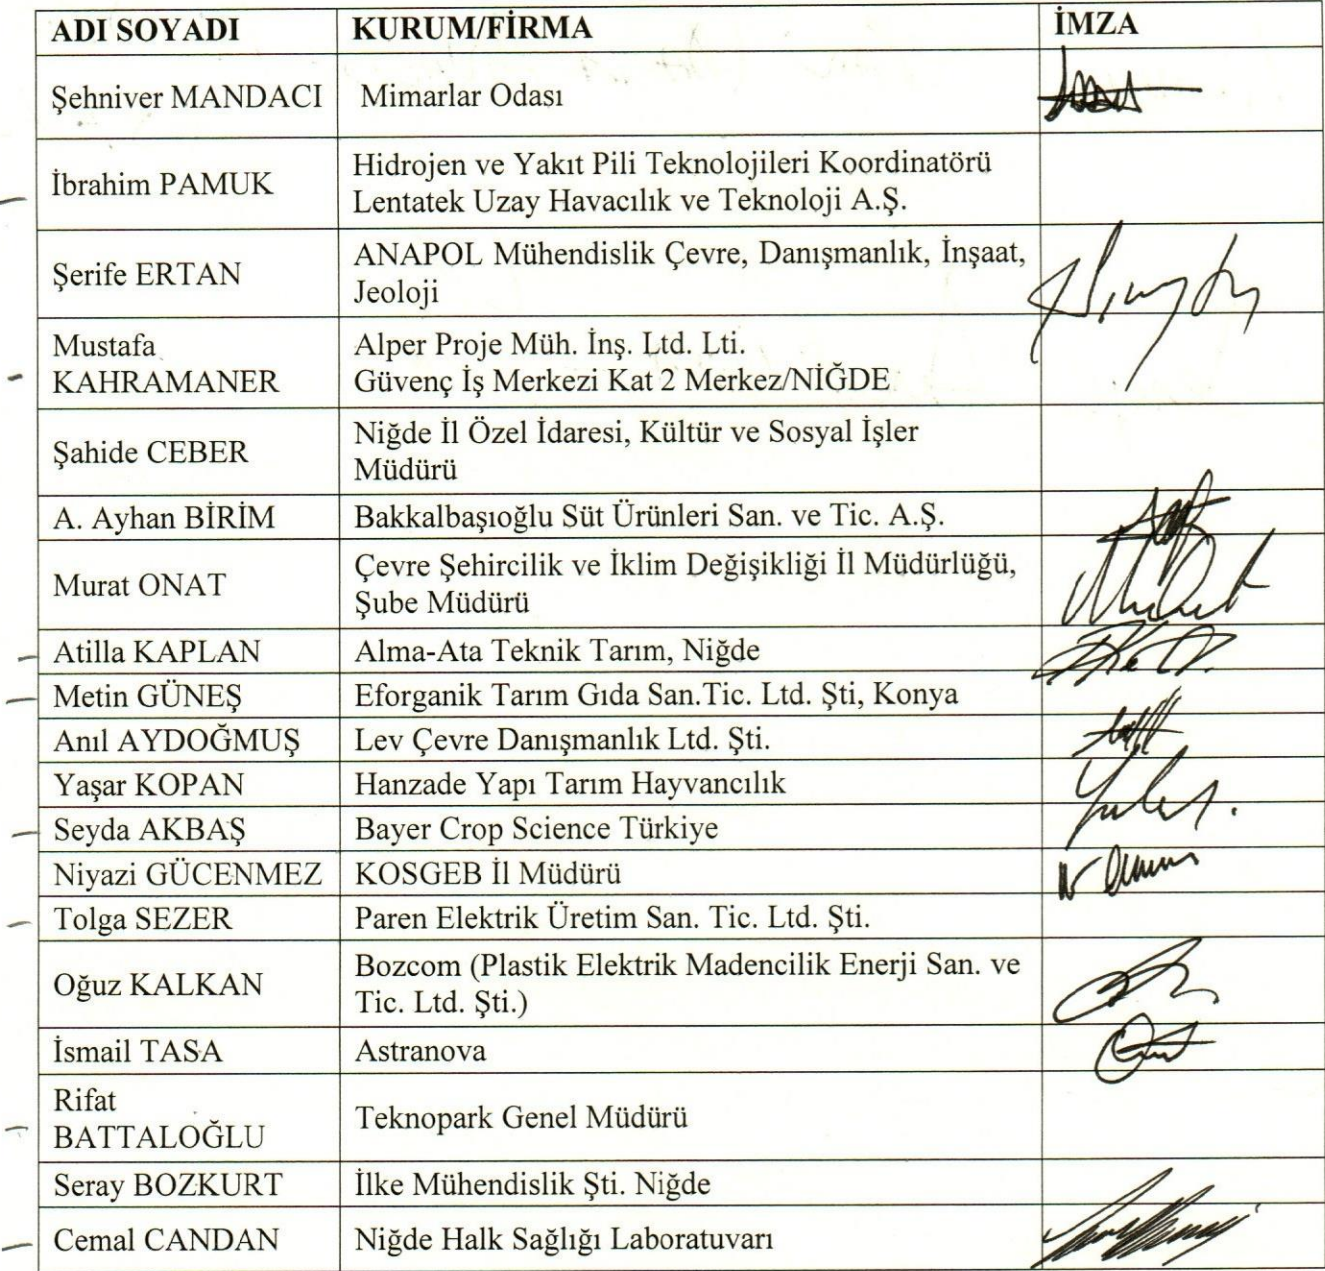 ADI SOYADI KURUM/FİRMA İMZA
Şehniver MANDACI Mimarlar Odası
İbrahim PAMUK Hidrojen ve Yakıt Pili Teknolojileri Koordinatörü
Lentatek Uzay Havacılık ve Teknoloji A.Ş.
Şerife ERTAN ANAPOL Mühendislik Çevre, Danışmanlık, İnşaat,
Jeoloji
Mustafa Alper Proje Müh. İnş. Ltd. Lti.
KAHRAMANER Güvenç İş Merkezi Kat 2 Merkez/NİĞDE
Şahide CEBER Niğde İl Özel İdaresi, Kültür ve Sosyal İşler
Müdürü
A. Ayhan BİRİM Bakkalbaşıoğlu Süt Ürünleri San. ve Tic. A.Ş.
Murat ONAT Çevre Şehircilik ve İklim Değişikliği İl Müdürlüğü,
Şube Müdürü
Atilla KAPLAN Alma-Ata Teknik Tarım, Niğde
Metin GÜNEŞ Eforganik Tarım Gıda San.Tic. Ltd. Şti, Konya
Anıl AYDOĞMUŞ Lev Çevre Danışmanlık Ltd. Şti.
Yaşar KOPAN Hanzade Yapı Tarım Hayvancılık
Seyda AKBAŞ Bayer Crop Science Türkiye
Niyazi GÜCENMEZ KOSGEB İl Müdürü
Tolga SEZER Paren Elektrik Üretim San. Tic. Ltd. Şti.
Oğuz KALKAN Bozcom (Plastik Elektrik Madencilik Enerji San. ve
Tic. Ltd. Şti.)
İsmail TASA Astranova
Rifat
BATTALOĞLU Teknopark Genel Müdürü
Seray BOZKURT İlke Mühendislik Şti. Niğde
Cemal CANDAN Niğde Halk Sağlığı Laboratuvarı